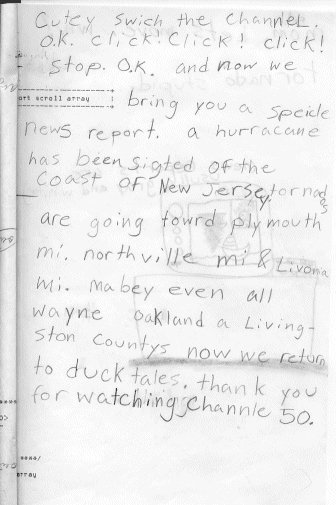 Cutey swich the channel.
O.K. click! Click! click!
Stop. O.K. and now we
ort scroll array
bring you a speicle
news report. a hurracane
has been sigted of the
coast of New Jersey, tornados
are going towrd plymouth
mi. northville mi & Livonia
Mi. mabey even all
wayne oakland a Living-
ston countys now we return
to duck tales. thank you
for watching Channle 50.
****
****/
array